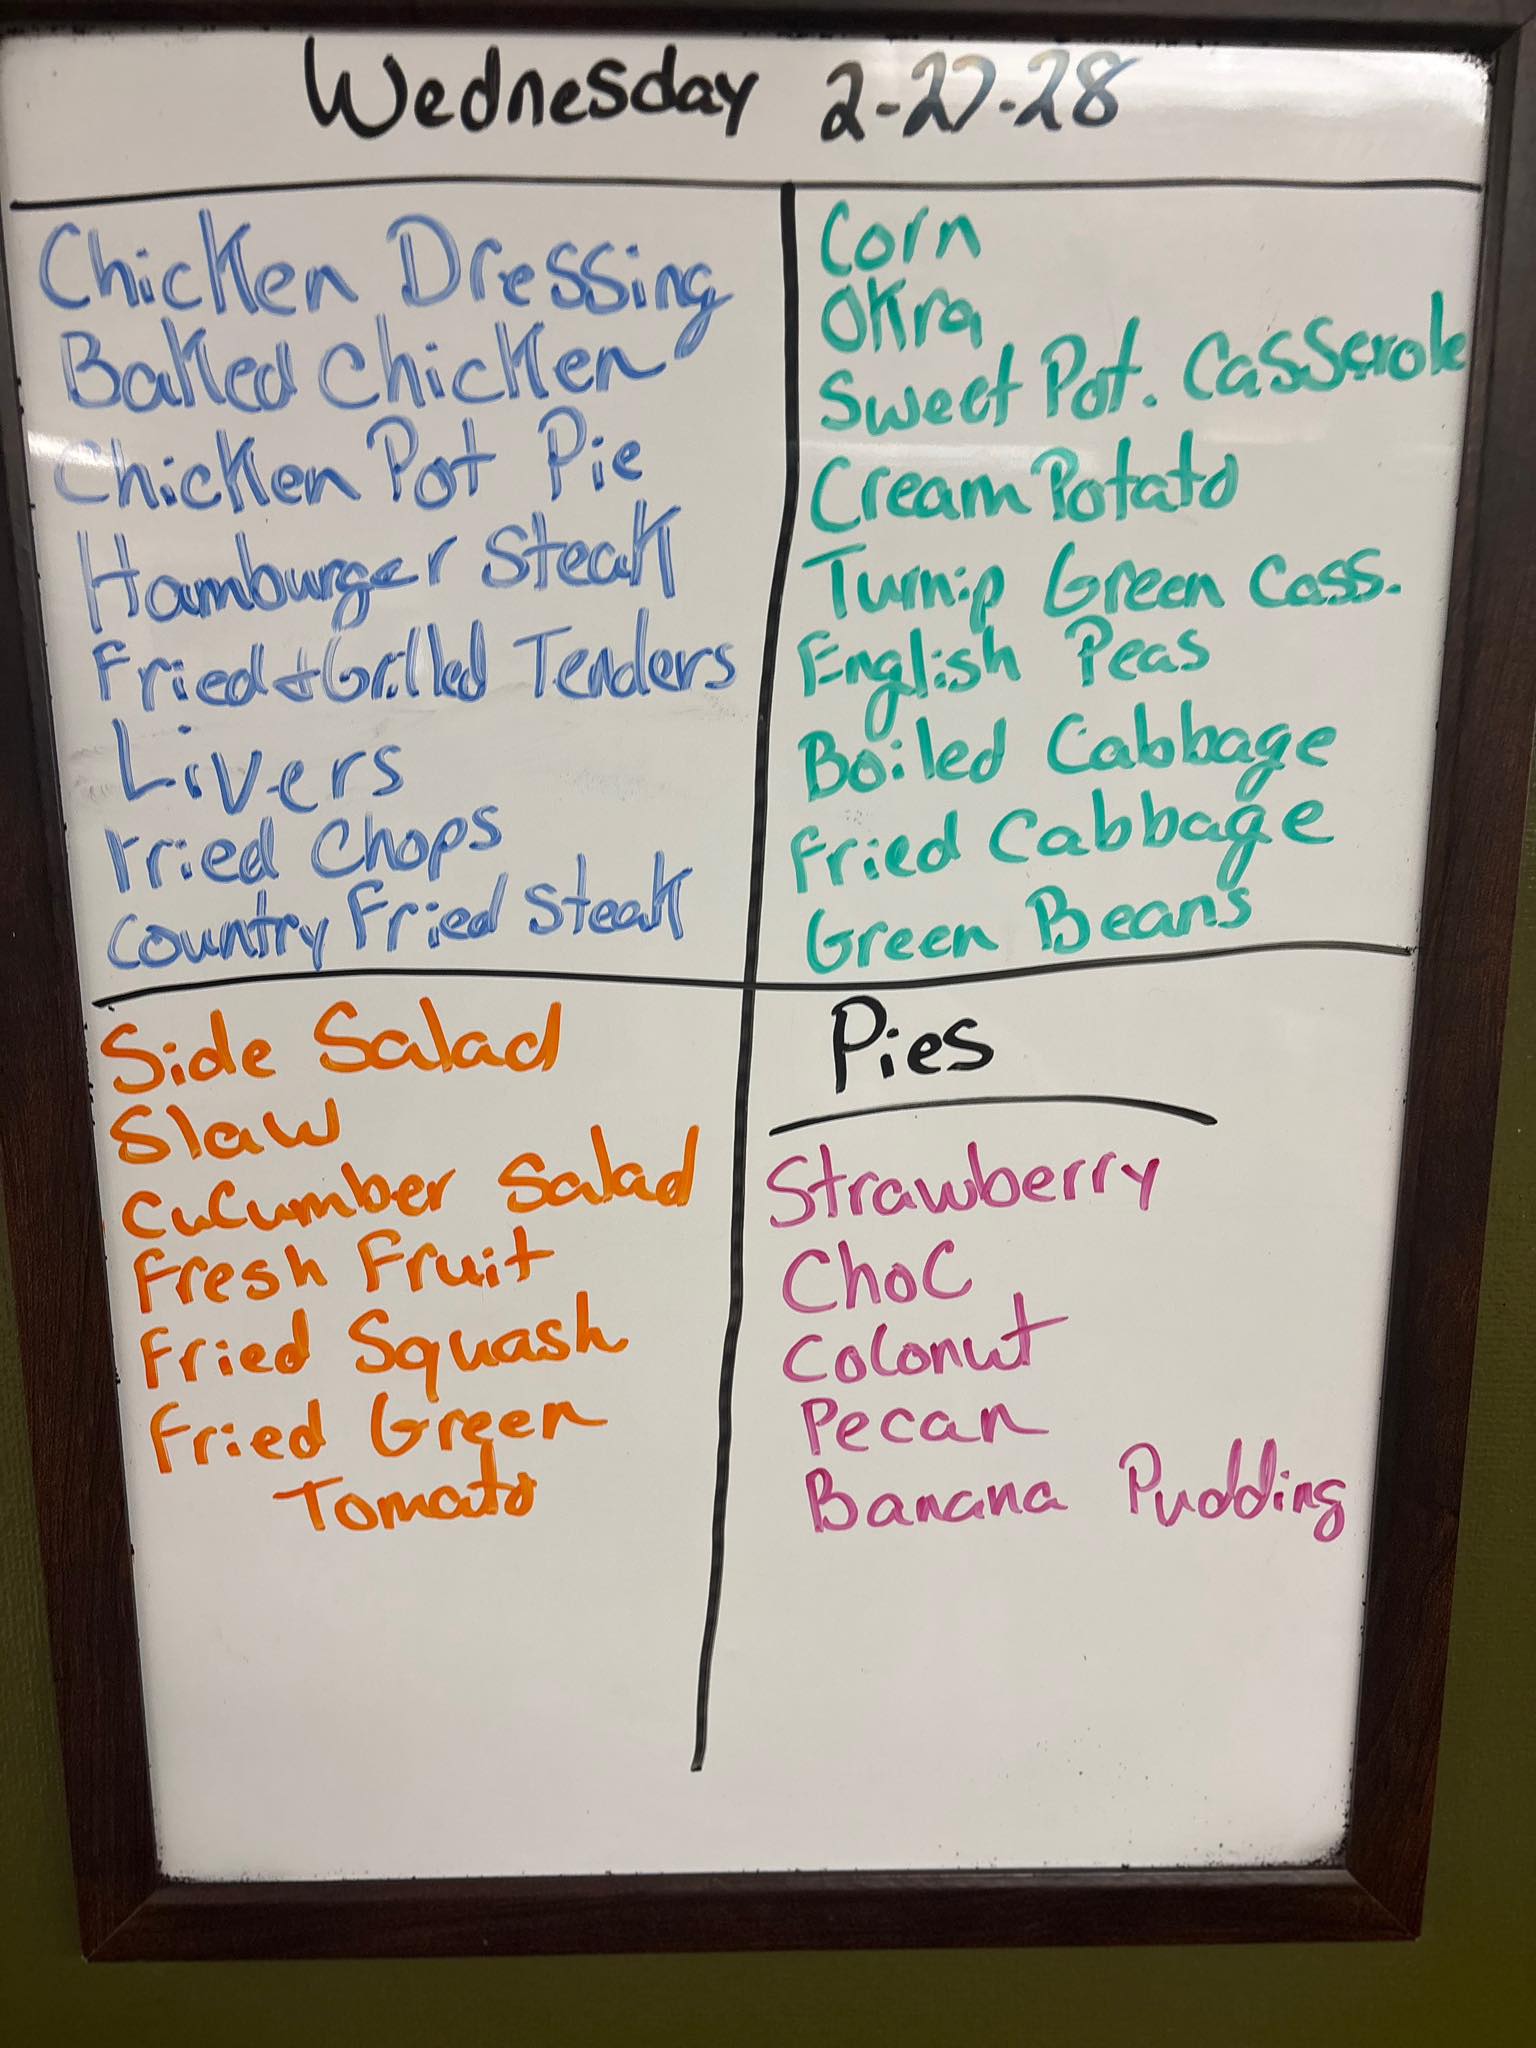 Wednesday 2-27-28
Chicken Dressing
Baked Chicken
Chicken Pot Pie
Hamburger Steak
Fried & Grilled Tenders
Livers
Fried Chops
Country Fried Steak
Corn
Okra
Sweet Pot. Casserole
Cream Potato
Turnip Green Cass.
English Peas
Boiled Cabbage
Fried Cabbage
Green Beans
Side Salad
Slaw
Cucumber Salad
Fresh Fruit
Fried Squash
Fried Green
Tomato
Pies
Strawberry
Choc
Coconut
Pecan
Banana Pudding